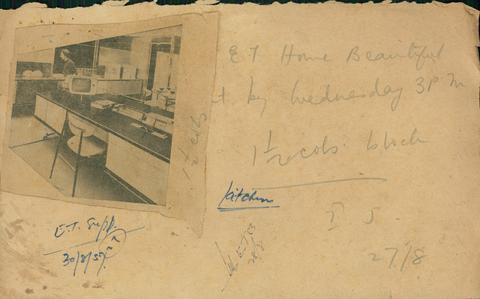 E T Home Beautiful
by Wednesday 3 P M
1½ cols. block
kitchen
E.T. Supp.
30/8/57
27/8